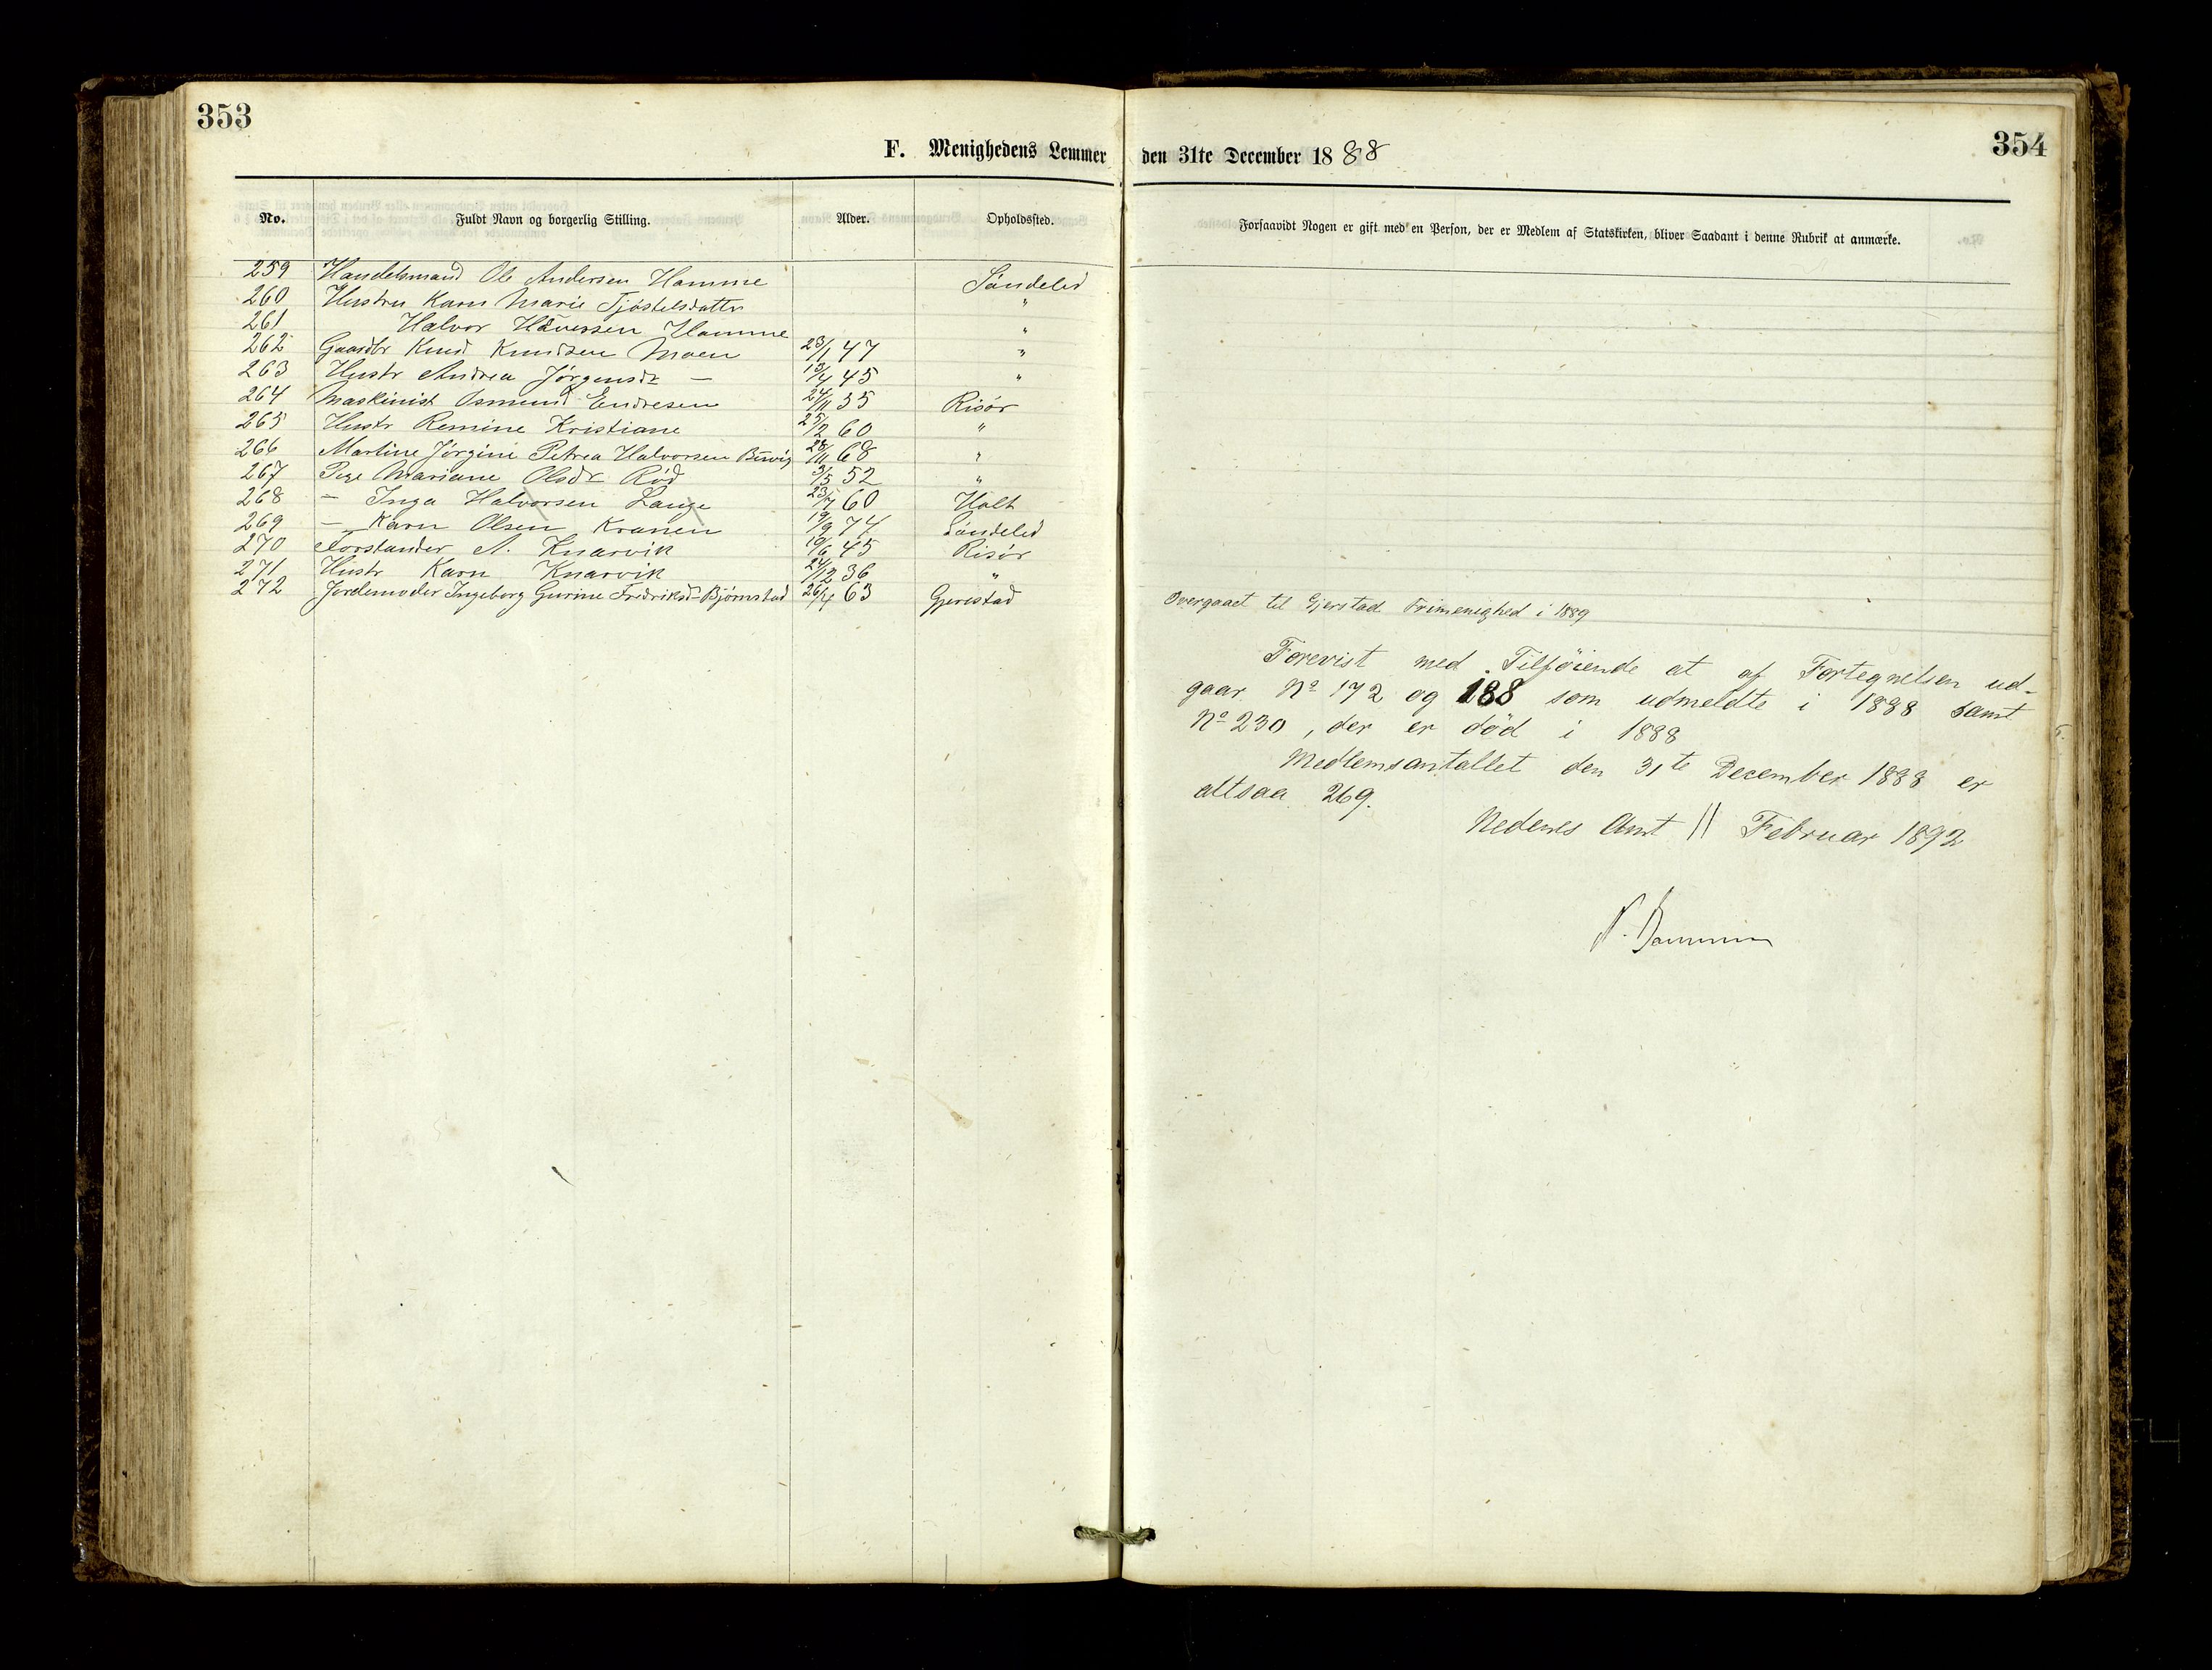 353
354
F. Menighedens Lemmer den 31te December 1888
No. Fuldt Navn og borgerlig Stilling. Alder. Opholdssted. Forsaavidt Nogen er gift med en Person, der er Medlem af Statskirken, bliver Saadant i denne Rubrik at anmærke.
259 Handelsmand Ole Andersen Hamme Söndeled
260 Hustru Karn Marie Tjöstelsdatter "
261 Halvor Hövessen Hamme "
262 Gaardbr Knud Knudsen Moen 23/1 47 "
263 Hustr Andrea Jörgensdr — 13/4 45 "
264 Maskinist Osmund Endresen 24/11 55 Risör
265 Hustr Remine Kristiane 25/2 60 "
266 Martine Jörgine Petrea Halvorsen 28/11 68 "
267 Pige Mariane Olsdr Röd 3/5 52 "
268 — Inga Halvorsen Lange 23/7 60 Holt
269 — Karn Olsen Kranen 19/9 74 Söndeled
270 Forstander A. Knarvik 19/6 45 Risör
271 Hustr Karn Knarvik 24/12 36 "
272 Jordemoder Ingeborg Gurine Fredriksd Björnstad 26/4 63 Gjerestad Overgaaet til Gjerstad Frimenighed i 1889
Forevist med Tilföiende at af Fortegnelsen ud-
gaar No 172 og 188 som udmeldte i 1888 samt
No 230, der er död i 1888
Medlemsantallet den 31te December 1888 er
altsaa 269.
Nedenes Amt 11 Februar 1892